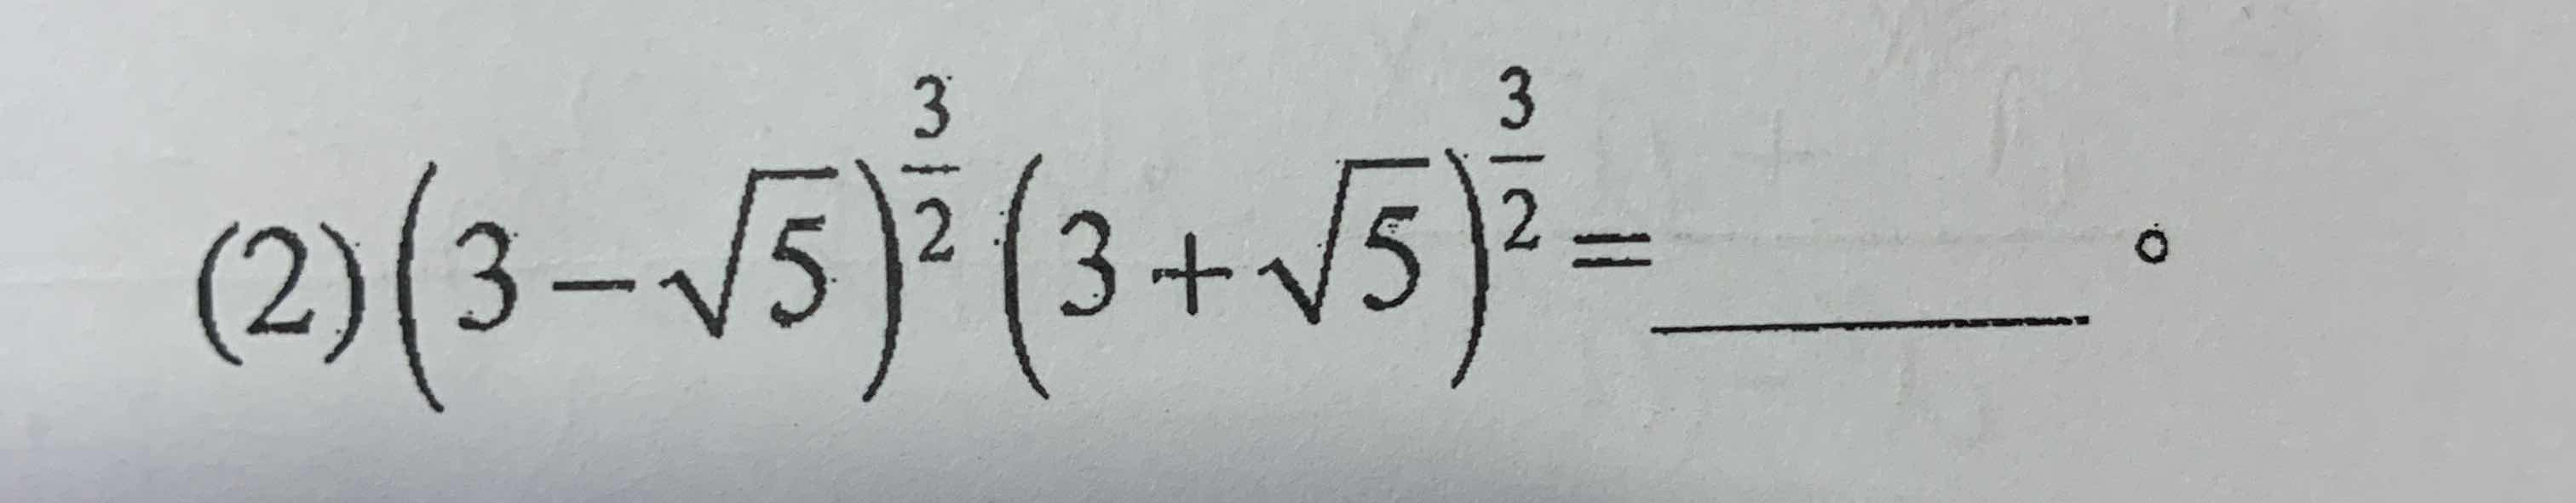 (2)(3-√5)^{3/2}(3+√5)^{3/2}=______。